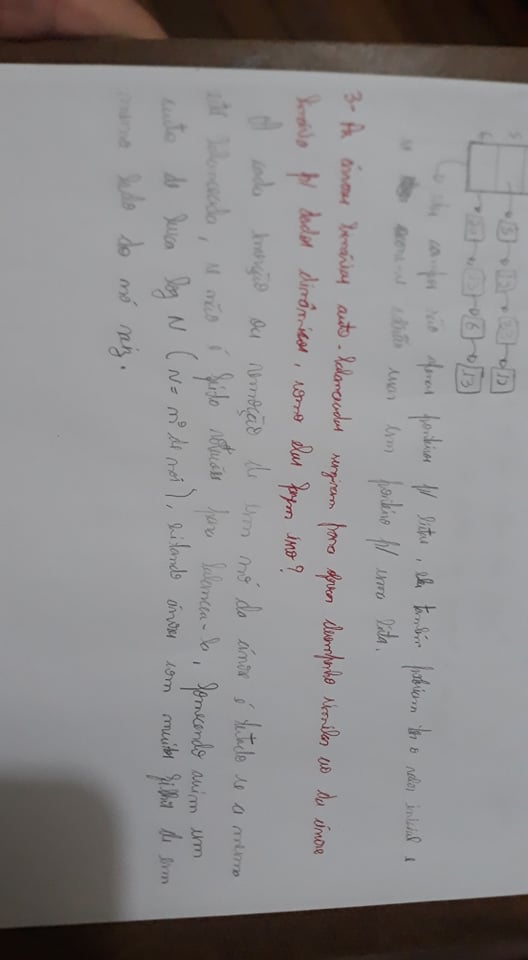 5 5 12 12
6 6 13
campos são apenas ponteiros p/ listas, eles também poderiam ter o valor inicial e
usar um ponteiro p/ uma lista.
3- As árvores binárias auto-balanceadas surgiram para oferecer desempenho similar ao da árvore
binária p/ dados dinâmicos, como elas fazem isso?
A cada inserção ou remoção de um nó da árvore é testado se a mesma
está balanceada, se não é feito rotações para balancea-la, fornecendo assim um
custo de busca log N (N= nº de nós), evitando árvores com muitos filhos de um
mesmo lado do nó raiz.